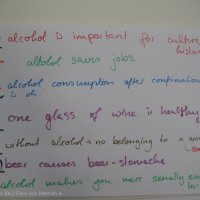 alcohol is important for culture
history
alkohol saves jobs
alcohol consumption after confirmation
is ok.
one glass of wine is healthy
without alcohol = no belonging to a
bear causes bear-stomache
alcohol makes you more sexually